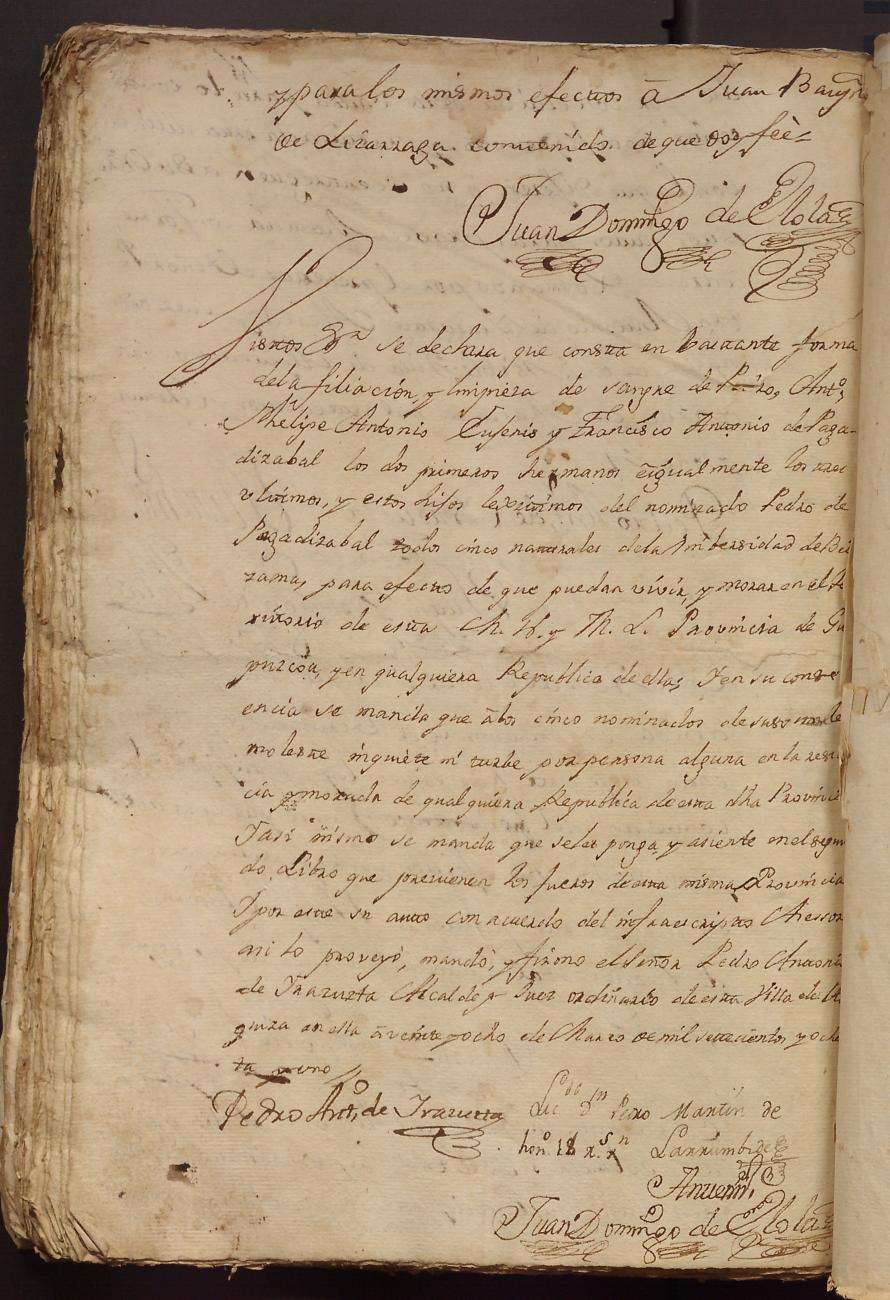 y para los mismos efectos â Juan Baup
de Lizarraga contenido. de que doy feè=
Juan Domingo de Elola
Vistos &ª se declara que consta en bastante forma
dela filiación, y limpieza de sangre de Pedro, Antº,
Phelipe Antonio Eusenio y Francisco Antonio de Paga-
dizabal los dos primeros hermanos è igualmente los tres
vltimos, y estos hijos lexitimos del nominado Pedro de
Pagadizabal todos cinco naturales dela Vnibersidad de Bei
zama, para efecto de que puedan vivir, y morar en el te
rritorio de esta M. N. y M. L. Provincia de Gui
puzcoa, y en qualquiera Republica de ella; Y en su cons
encia se manda que â los cinco nominados de suso no se le
moleste inquiete ni turbe por persona alguna en la resi
cia y morada de qualquiera Republica de esta dha Provinci
Y asi mismo se manda que se les ponga, y asiente en el segun
do Libro que previenen los fueros de esta misma Provincia
Y por este su auto con acuerdo del infraescripto Asessor
asi lo proveyó, mandó, y firmo el Señor Pedro Antonio
de Irazusta Alcalde y Juez ordinario de esta Villa de A
en ella â veinte y ocho de Marzo de mil setecientos, y oche
ta y uno
Pedro Antº, de Irazusta Licdo Dn Pedro Martin de
Larrumbide
Antemi,
Juan Domingo de Elola